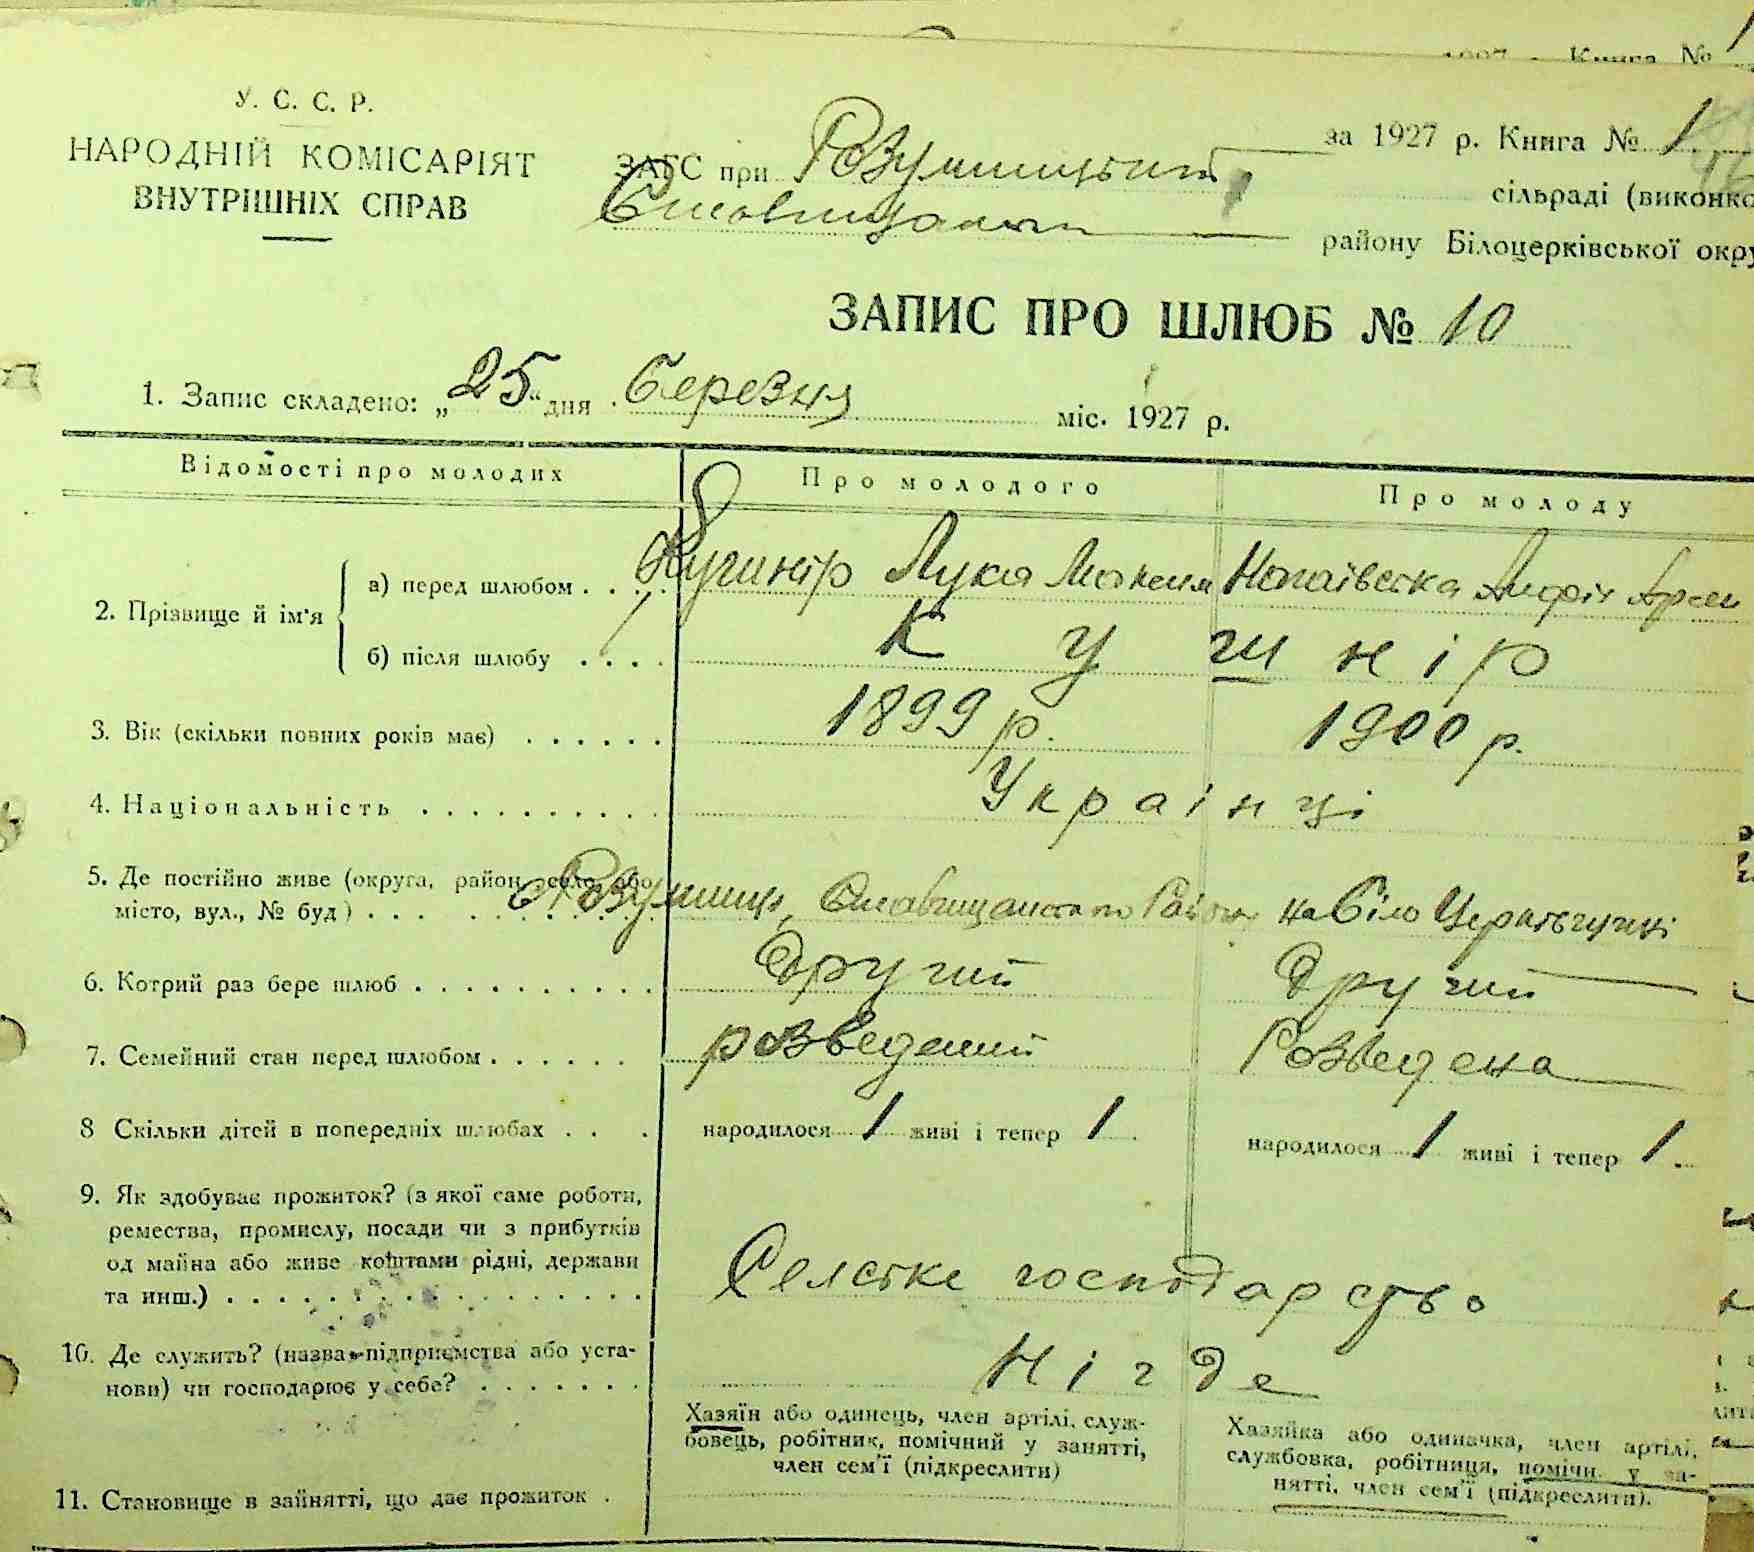 1927 р. Книга №
У. С. С. Р.
НАРОДНІЙ КОМІСАРІЯТ
ВНУТРІШНІХ СПРАВ
ЗАГС при за 1927 р. Книга № 1
сільраді (виконко
району Білоцерківської окру
ЗАПИС ПРО ШЛЮБ № 10
1. Запис складено: „25“ дня березня міс. 1927 р.
Відомості про молодих Про молодого Про молоду
2. Прізвище й ім'я
а) перед шлюбом Лука
б) після шлюбу Кушнір
3. Вік (скільки повних років має) 1899 р. 1900 р.
4. Національність Українці
5. Де постійно живе (округа, район, село або
місто, вул., № буд) на Біло Церківчині
6. Котрий раз бере шлюб Другий Другий
7. Семейний стан перед шлюбом розведений Розведена
8 Скільки дітей в попередніх шлюбах народилося 1 живі і тепер 1. народилося 1 живі і тепер 1.
9. Як здобуває прожиток? (з якої саме роботи,
ремества, промислу, посади чи з прибутків
од майна або живе коштами рідні, держави
та инш.) Селське господарство
10. Де служить? (назва підприємства або уста-
нови) чи господарює у себе? Нігде
Хазяїн або одинець, член артілі, служ-
бовець, робітник, помічний у занятті,
член сем'ї (підкреслити)
Хазяйка або одиначка, член артілі,
службовка, робітниця, помічн. у за-
нятті, член сем'ї (підкреслити).
11. Становище в зайнятті, що дає прожиток